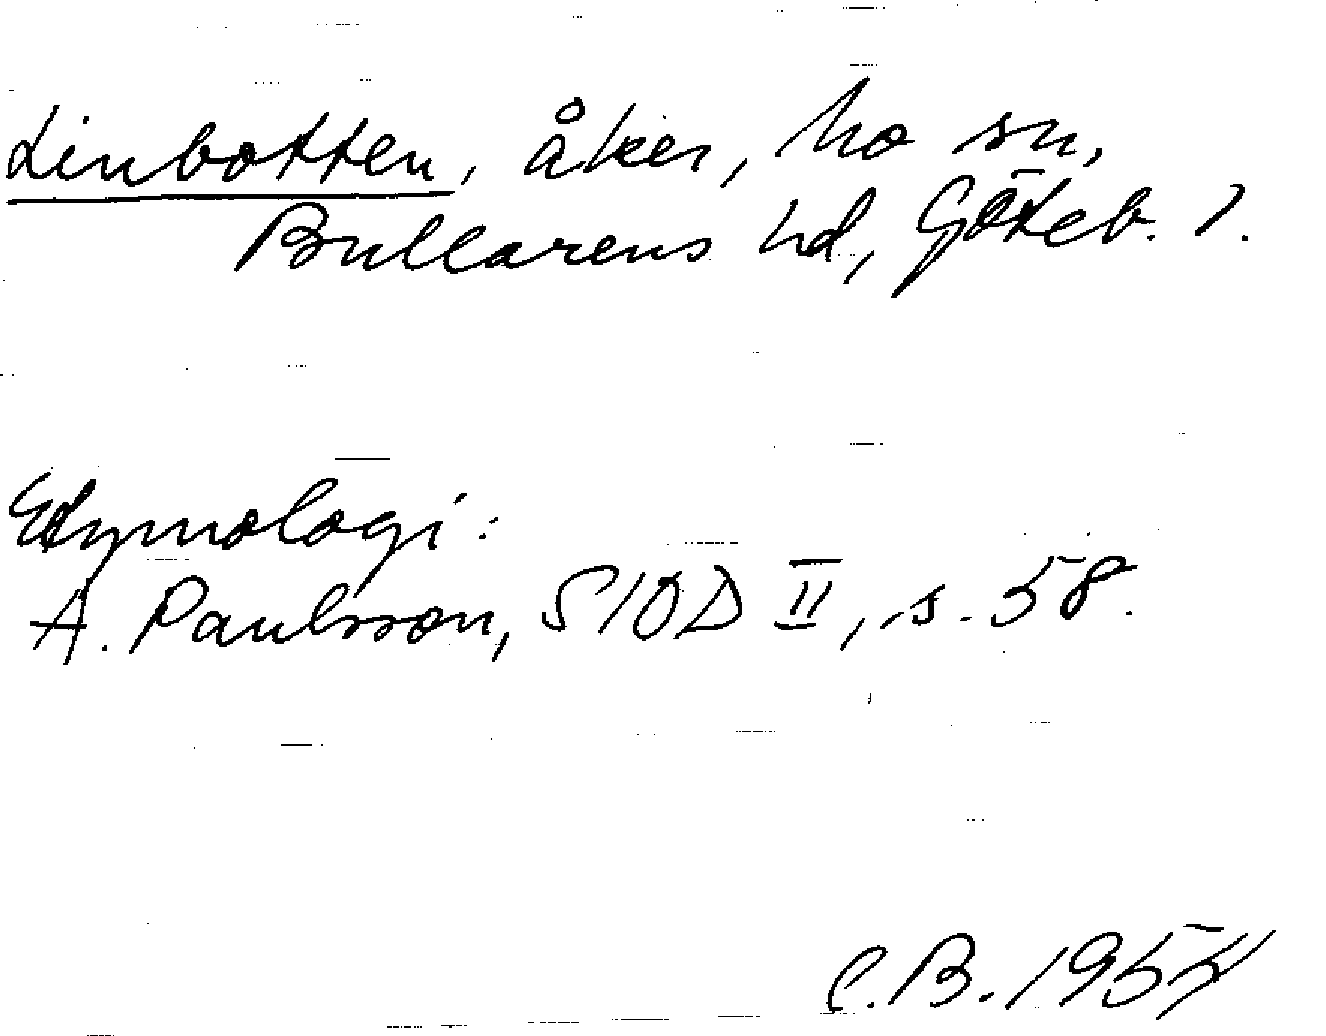 Linbotten, åker, Mo sn,
Bullarens hd, Göteb. l.
Etymologi:
A. Paulsson, SIOD II, s. 58.
C.B.